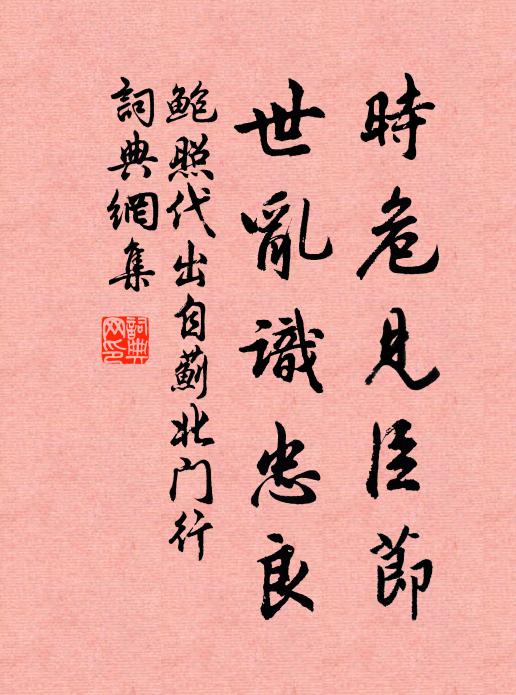 時危見臣節
世亂識忠良
鮑照代出自薊北门行
詞典網集
詞典网印